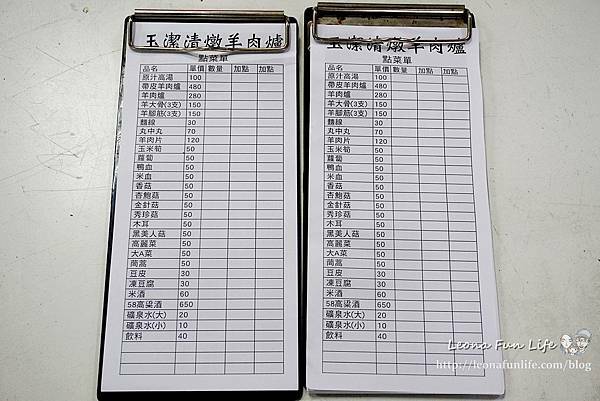 玉潔清燉羊肉爐
點菜單
品名 單價 數量 加點 加點
原汁高湯 100
帶皮羊肉爐 480
羊肉爐 280
羊大骨(3支) 150
羊腳筋(3支) 150
麵線 30
丸中丸 70
羊肉片 120
玉米筍 50
蘿蔔 50
鴨血 50
米血 50
香菇 50
杏鮑菇 50
金針菇 50
秀珍菇 50
木耳 50
黑美人菇 50
高麗菜 50
大A菜 50
茼蒿 50
豆皮 30
凍豆腐 30
米酒 60
58高粱酒 650
礦泉水(大) 20
礦泉水(小) 10
飲料 40
玉潔清燉羊肉爐
點菜單
品名 單價 數量 加點 加點
原汁高湯 100
帶皮羊肉爐 480
羊肉爐 280
羊大骨(3支) 150
羊腳筋(3支) 150
麵線 30
丸中丸 70
羊肉片 120
玉米筍 50
蘿蔔 50
鴨血 50
米血 50
香菇 50
杏鮑菇 50
金針菇 50
秀珍菇 50
木耳 50
黑美人菇 50
高麗菜 50
大A菜 50
茼蒿 50
豆皮 30
凍豆腐 30
米酒 60
58高粱酒 650
礦泉水(大) 20
礦泉水(小) 10
飲料 40
Leona Fun Life
http://leonafunlife.com/blog